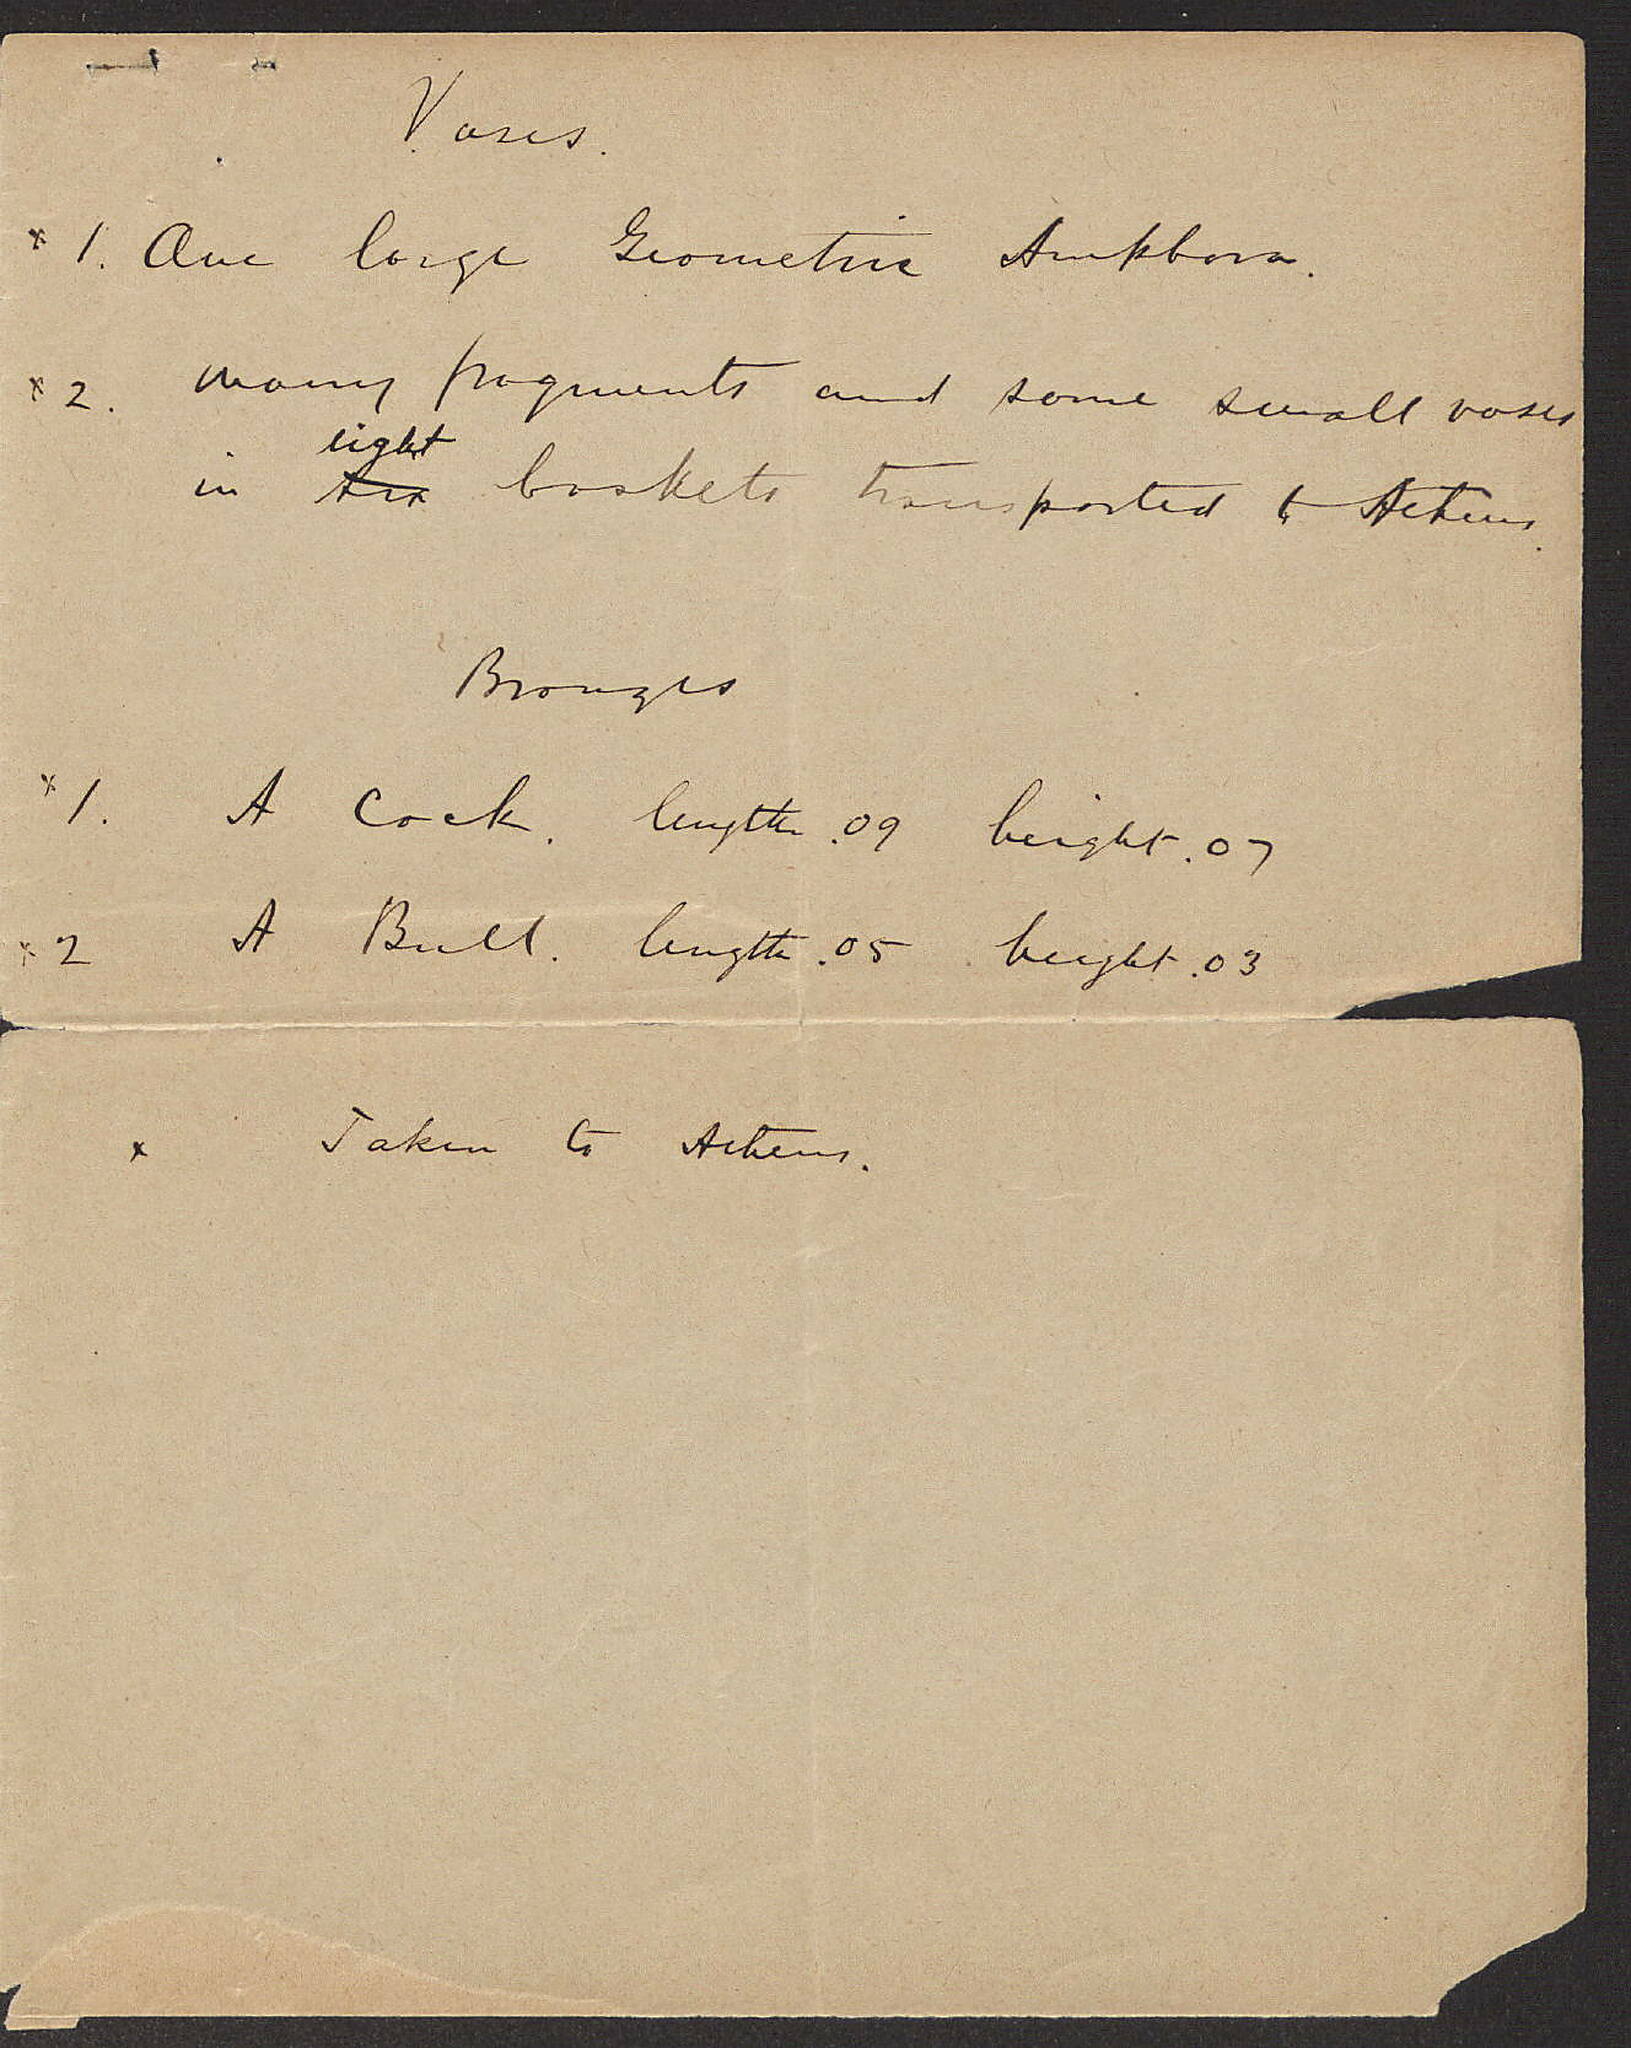 Vases.
x 1. One large Geometric Amphora.
x 2. many fragments and some small vases
eight
in six baskets transported to Athens.
Bronzes
x 1. A Cock. length .09 height .07
x 2 A Bull. length .05 height .03
x Taken to Athens.